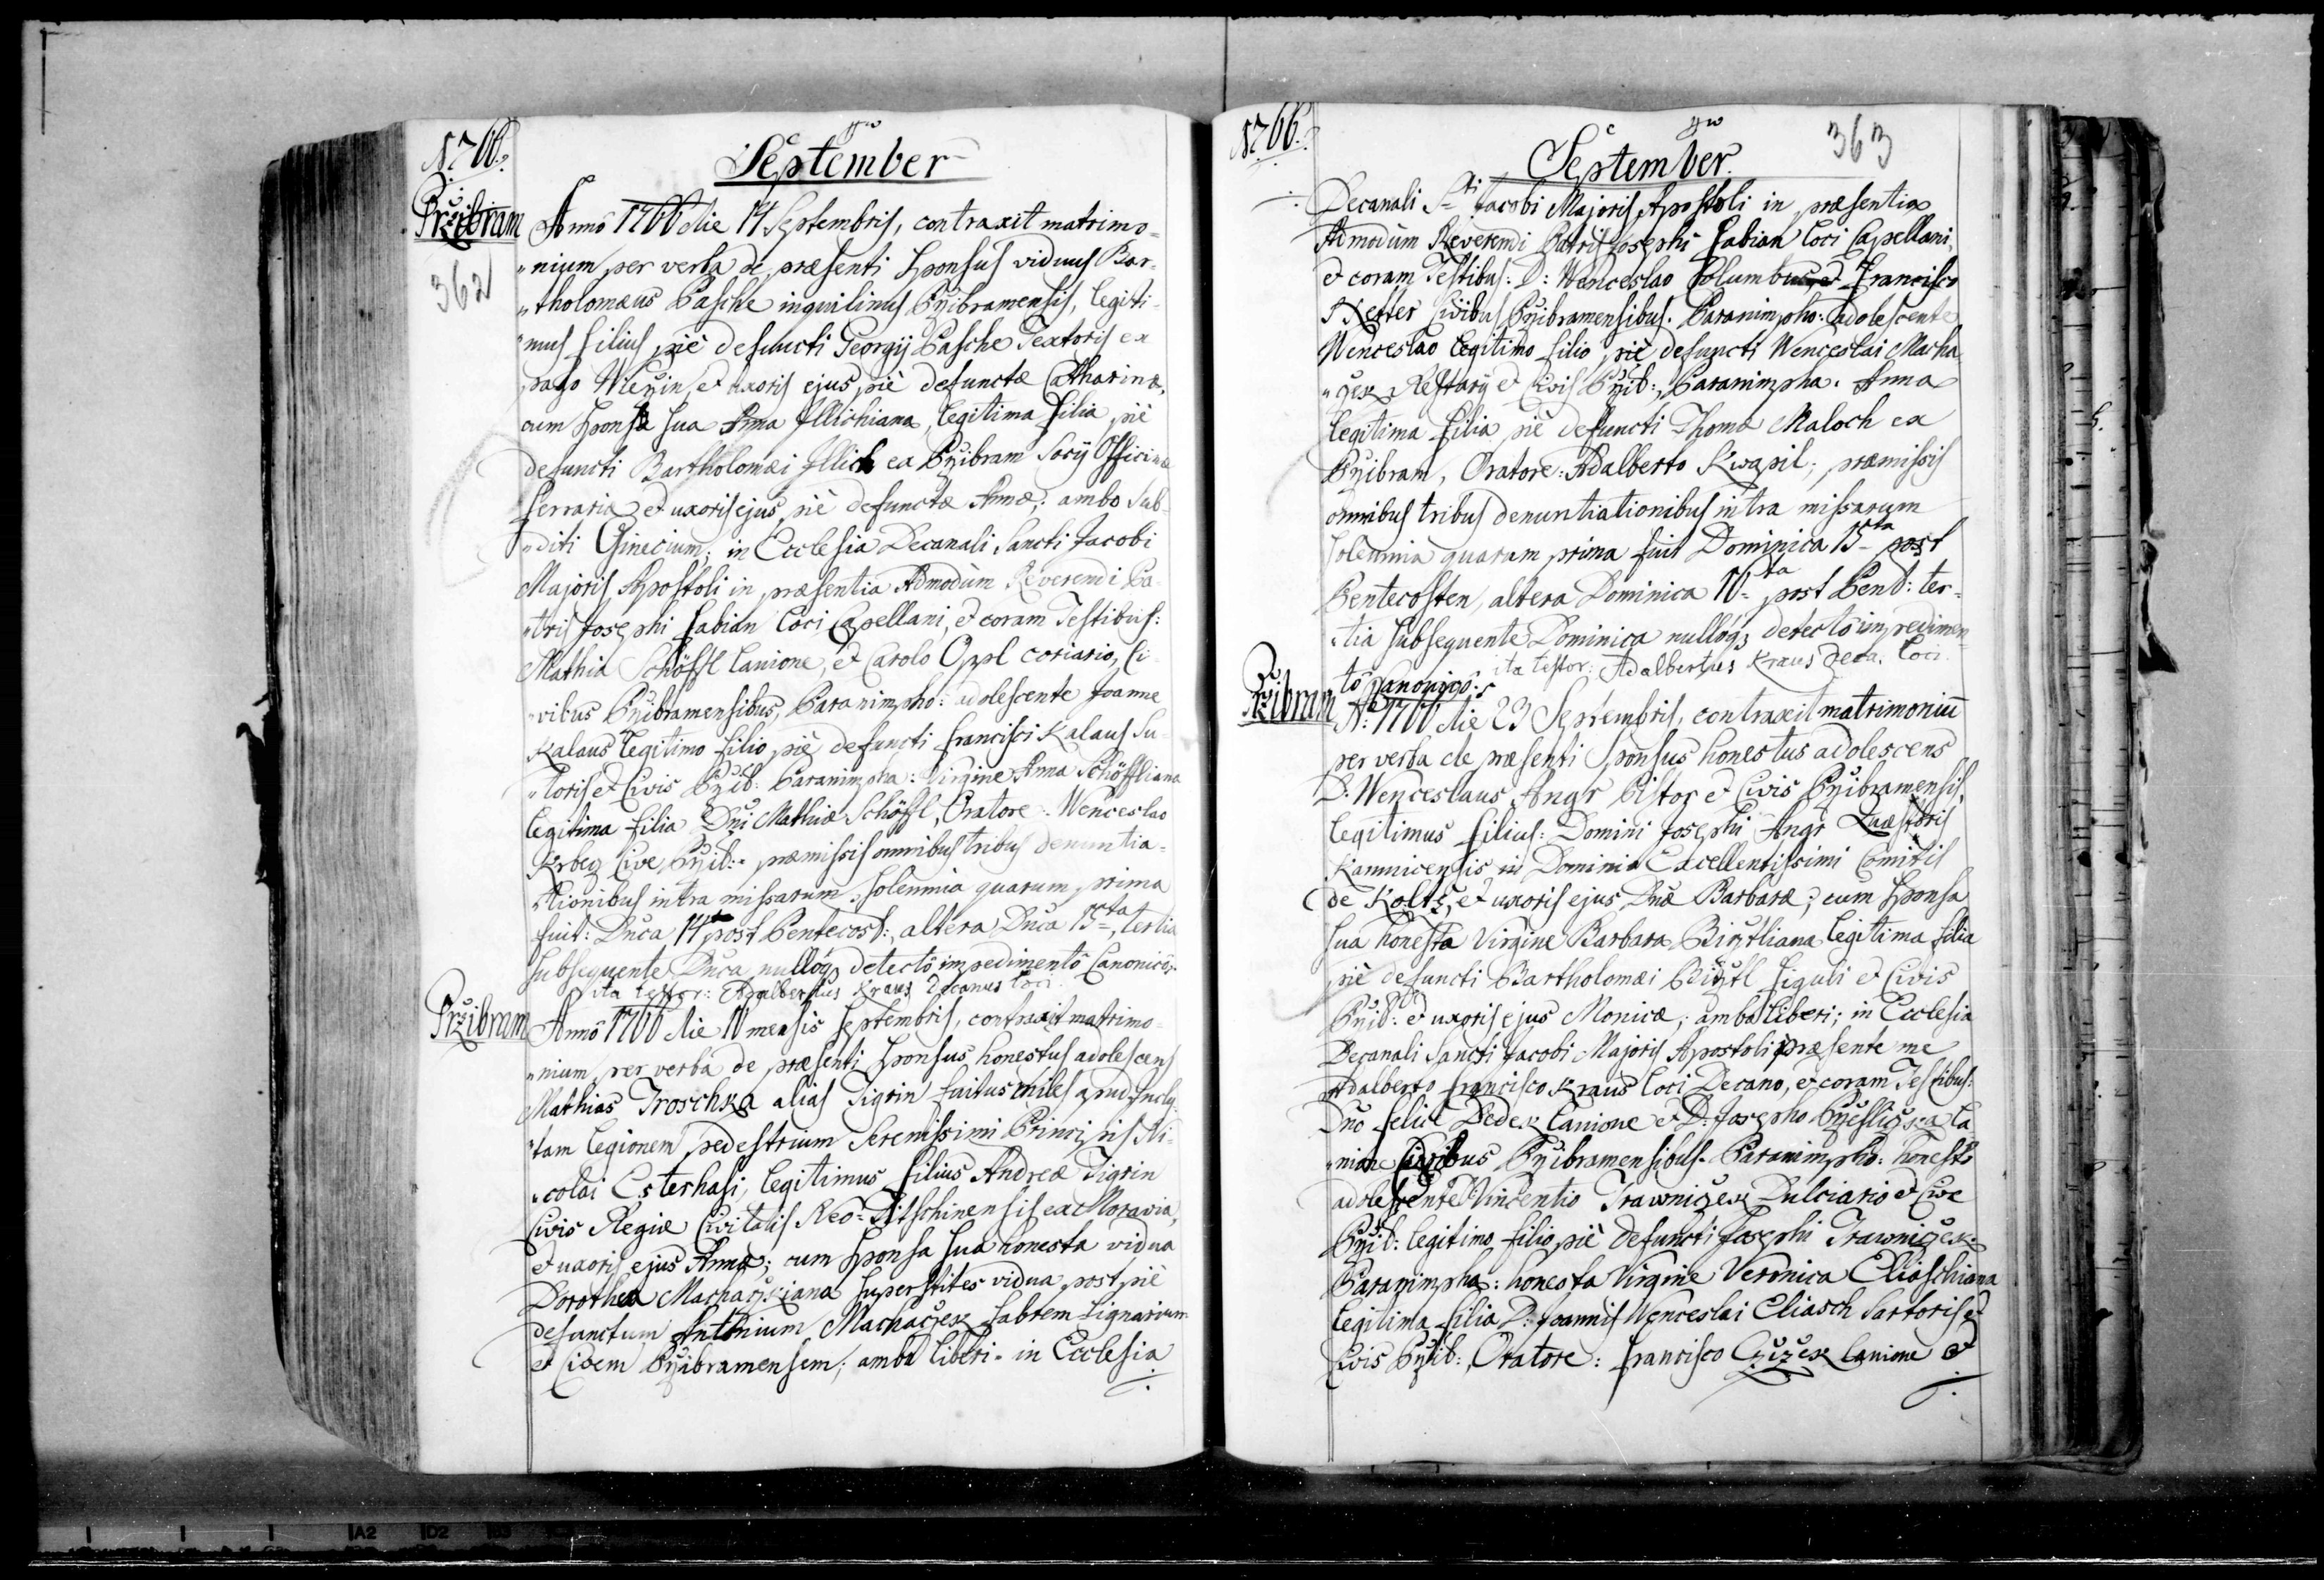 1766.
September
Przibram
362
Annô 1766 die 14 Septembris, contraxit matrimo=
"nium per verba de præsenti Sponsus viduus Bar=
"tholomæus Pasche inquilinus Przibramensis, legiti=
"mus filius piè defuncti Georgij Pasche Textoris ex
pago et uxoris ejus piè defunctæ Catharinæ,
cum Sponsa sua Anna Illichiana, legitima filia piè
defuncti Bartholomæi Illich ex Przibram Socij Officinæ
ferrariæ et uxoris ejus piè defunctæ Annæ; ambo Sub=
"diti in Ecclesia Decanali Sancti Jacobi
Majoris Apostoli in præsentia Admodùm Reverendi Pa=
"tris Josephi Fabian Loci Capellani, et coram Testibus:
Mathia Schöffl Lanione, et Carolo Oppl coriario, Ci=
"vibus Przibramensibus, Paranimpho: adolescente Joanne
Kalaus legitimo filio piè defuncti Francisci Kalaus Su=
"toris et Civis Przib: Paranimpha: Virgine Anna Schöffliana
legitima filia Dni Mathiæ Schöffl, Oratore: Wenceslao
Krbez Cive Przib: præmissis omnibus tribus denuntia=
"tionibus intra missarum solennia quarum prima
fuit: Dnca 14ta post Pentecost:, altera Dnca 15ta, tertia
subsequente Dnca nullóq; detectô impedimentô Canonicô;
ita testor: Adalbertus Kraus Decanus loci
Przibram
Annô 1766 die 16 mensis Septembris, contraxit matrimo=
"nium per verba de præsenti Sponsus honestus adolescens
Mathias Troschka alias Tigrin faitus miles apud Incly=
"tam legionem pedestrium Serenissimi Principis Ni=
"colai Esterhasi, legitimus filius Andreæ Tigrin
Civis Regiæ Civitatis Neo=Titschinensis ex Moravia,
et uxoris ejus Annæ; cum Sponsa sua honesta vidua
Dorothea Machaczkiana superstites vidua post piè
defunctum Antonium Machaczek fabrem Lignarium
et Civem Przibramensem; ambo liberi in Ecclesia
1766.
September.
363
Decanali Sti Jacobi Majoris Apostoli in præsentia
Admodùm Reverendi Patris Josephi Fabian Loci Capellani,
et coram Testibus: D: Wenceslao Columbus et Francisco
Netter Civibus Przibramensibus. Paranimpho: adolescente
Wenceslao legitimo filio piè defuncti Wenceslai Macha
"czek Restarij et Civis Przib:, Paranimpha: Anna
legitima filia piè defuncti Thomæ Maloch ex
Przibram, Oratore: Adalberto Kwapil; præmissis
omnibus tribus denuntiationibus intra missarum
solennia quarum prima fuit Dominica 15ta post
Pentecosten, altera Dominica 16ta post Pent: ter=
"tia subsequente Dominica nullóq; detectô impedimen=
tô Canonicô:
ita testor: Adalbertus Kraus Deca. Loci.
Przibram
A: 1766 die 23 Septembris, contraxit matrimoniū
per verba de præsenti Sponsus honestus adolescens
D. Wenceslaus Angr Pistor et Civis Przibramensis,
legitimus filius: Domini Josephi Angr Quæstoris
Kamnicensis in Dominio Excellentissimi Comitis
de Koltz, et uxoris ejus Dnæ Barbaræ; cum Sponsa
sua honesta Virgine Barbara Birztliana legitima filia
piè defuncti Bartholomæi Birztl figuli et Civis
Przib: et uxoris ejus Monicæ; ambo liberi; in Ecclesia
Decanali Sancti Jacobi Majoris Apostoli præsente me
Adalberto Francisco Kraus Loci Decano, et coram Testibus:
Dno Felice Dedek Lanione et D. Josepho Przesliczka La=
"nione Civibus Przibramensibus. Paranimpho: honesto
adolescente Vincentio Trawniczek Dulciario et Cive
Przib: legitimo filio piè defuncti Josephi Trawniczek.
Paranimpha: honesta Virgine Veronica Eliaschiana
legitima filia D: Joannis Wenceslai Eliasch Sartoris et
Civis Przib:, Oratore: Francisco Czizek Lanione et